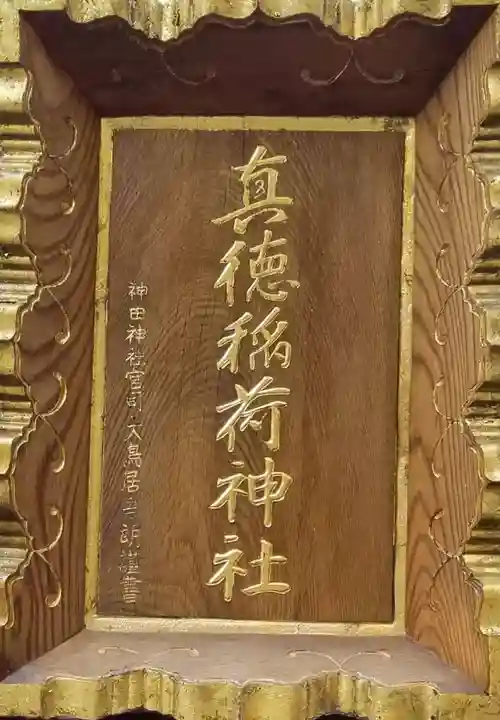 真徳稲荷神社
神田神社宮司 大鳥居吾朗謹書